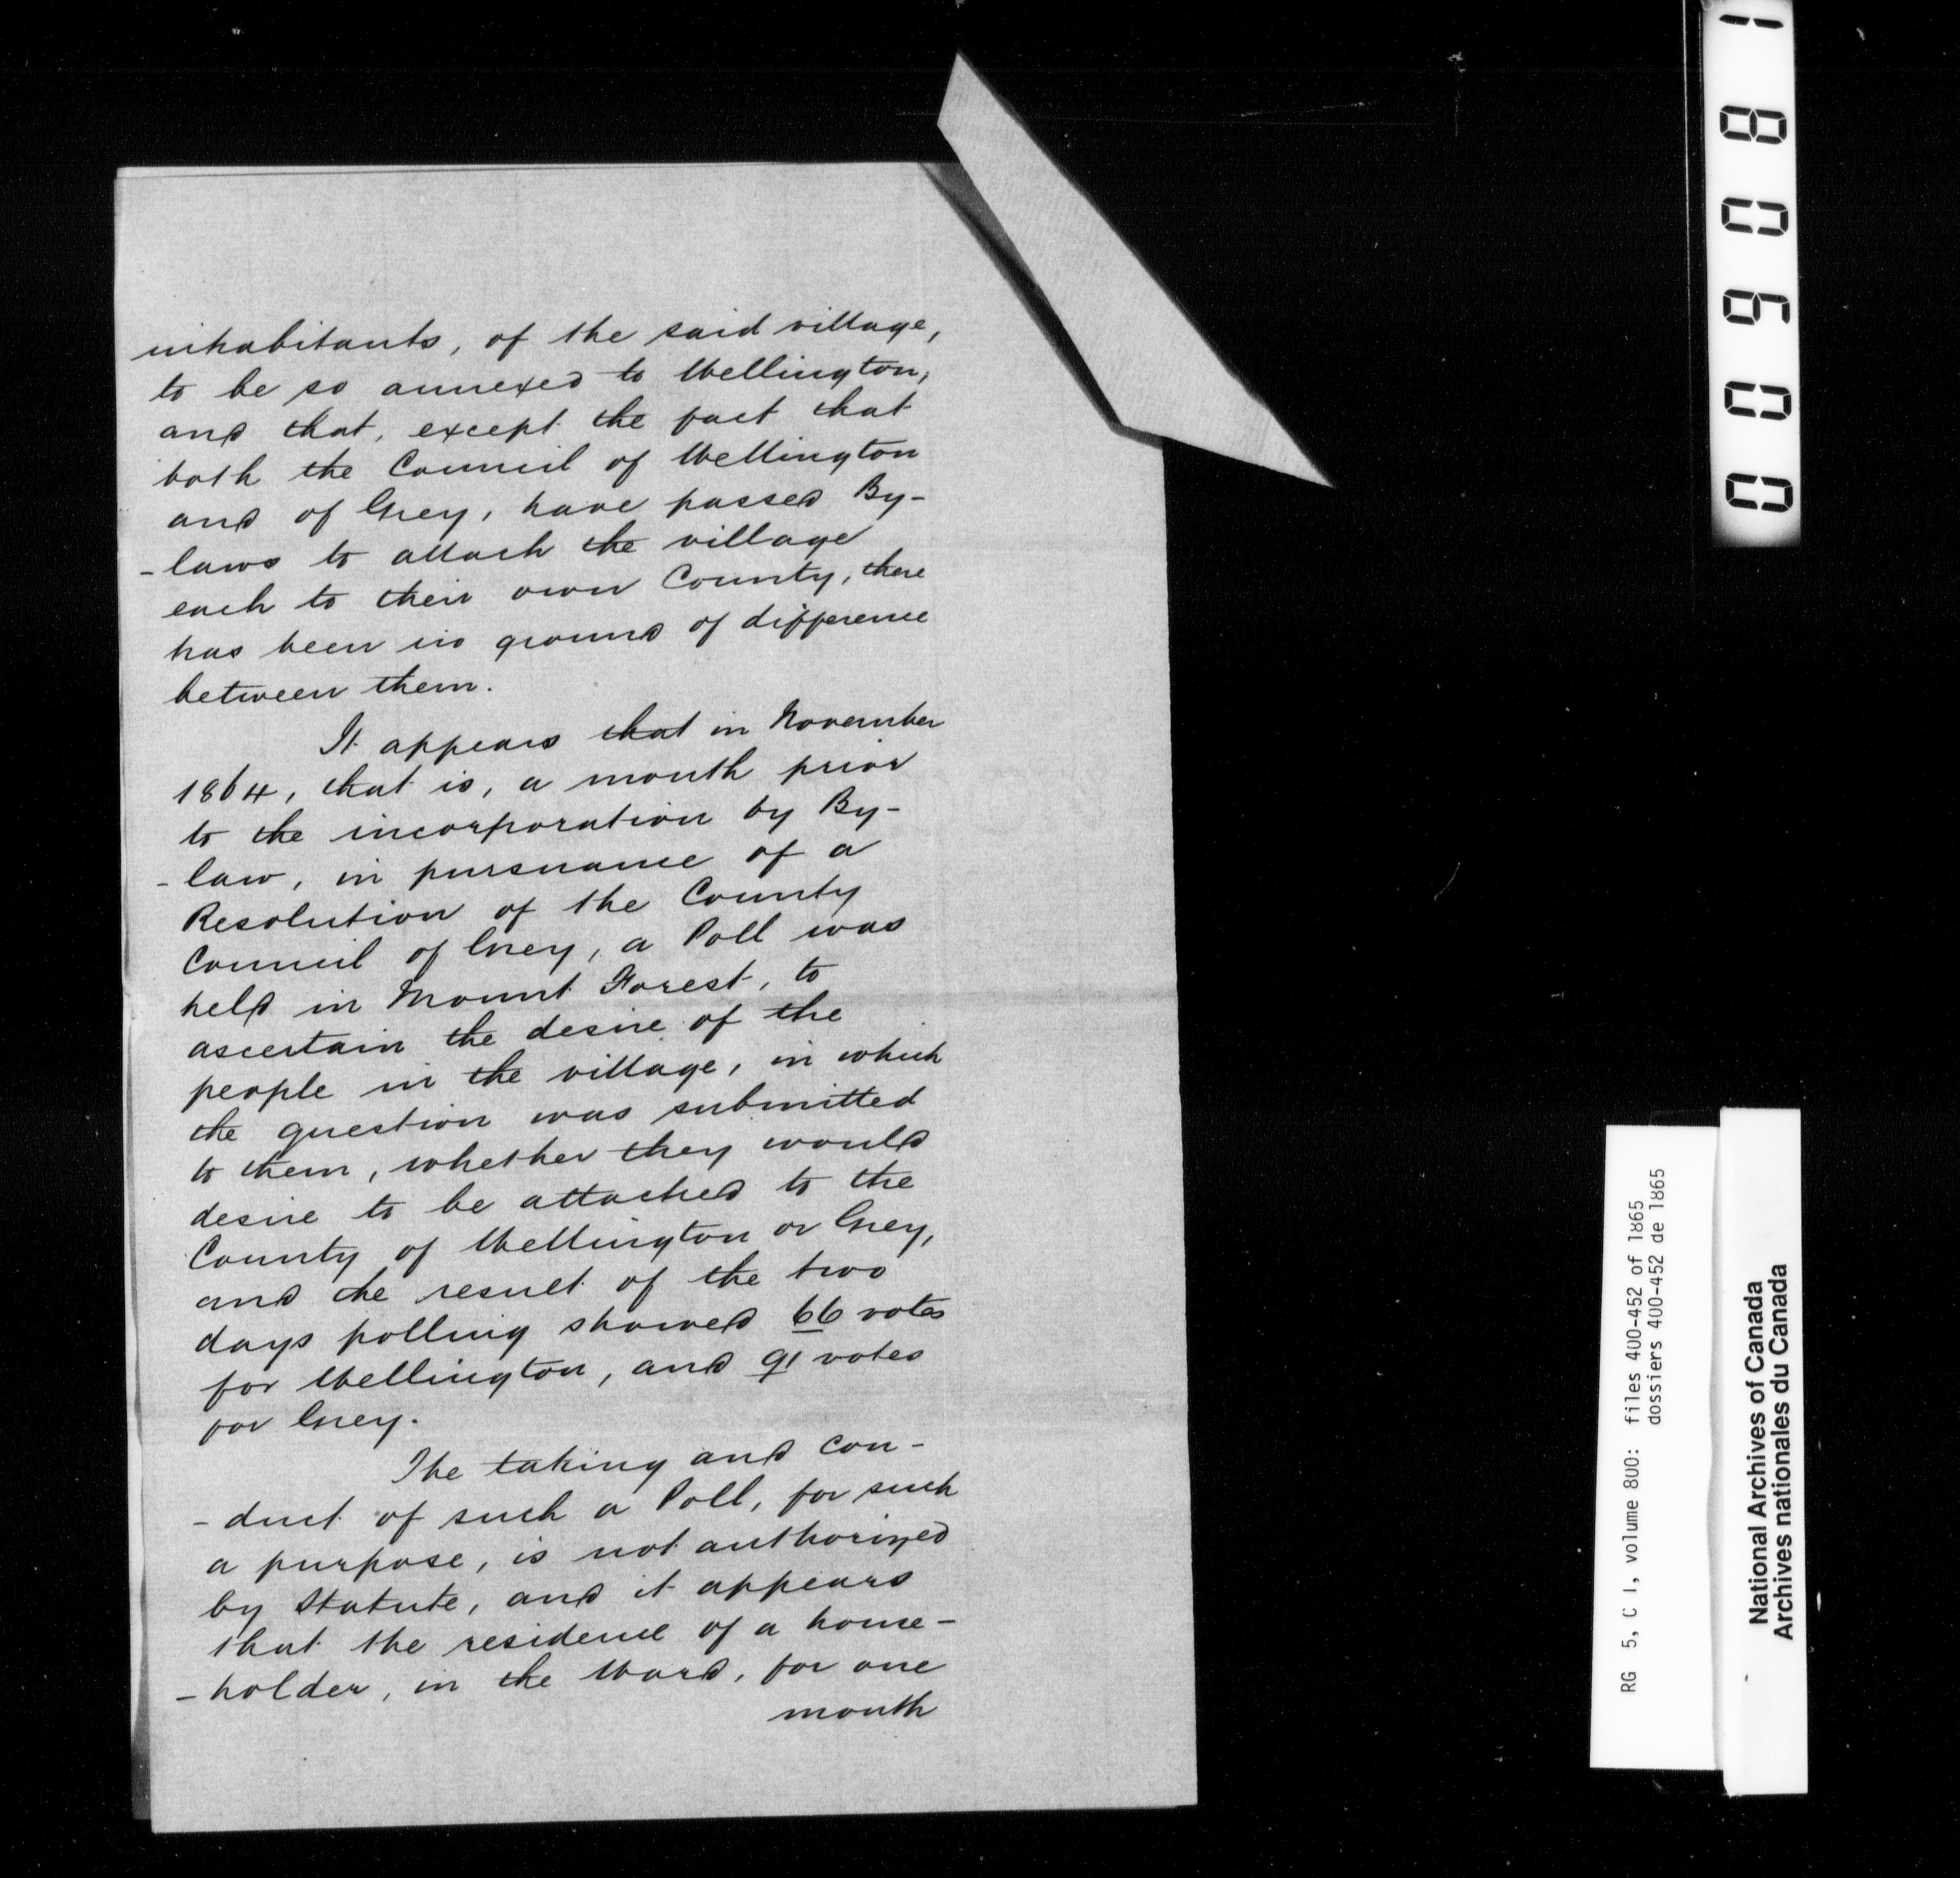 inhabitants, of the said village,
to be so annexed to Wellington;
and that, except the fact that
both the Council of Wellington
and of Grey, have passed By-
-laws to attach the village
each to their own County, there
has been no ground of difference
between them.
It appears that in November
1864, that is, a month prior
to the incorporation by By-
-law, in pursuance of a
Resolution of the County
Council of Grey, a Poll was
held in Mount Forest, to
ascertain the desire of the
people in the village, in which
the question was submitted
to them, whether they would
desire to be attached to the
County of Wellington or Grey,
and the result of the two
days polling showed 66 votes
for Wellington, and 91 votes
for Grey.
The taking and con-
-duct of such a Poll, for such
a purpose, is not authorized
by Statute, and it appears
that the residence of a house-
-holder, in the Ward, for one
month
000-60081
RG 5, C 1, volume 800: files 400-452 of 1865
dossiers 400-452 de 1865
National Archives of Canada
Archives nationales du Canada